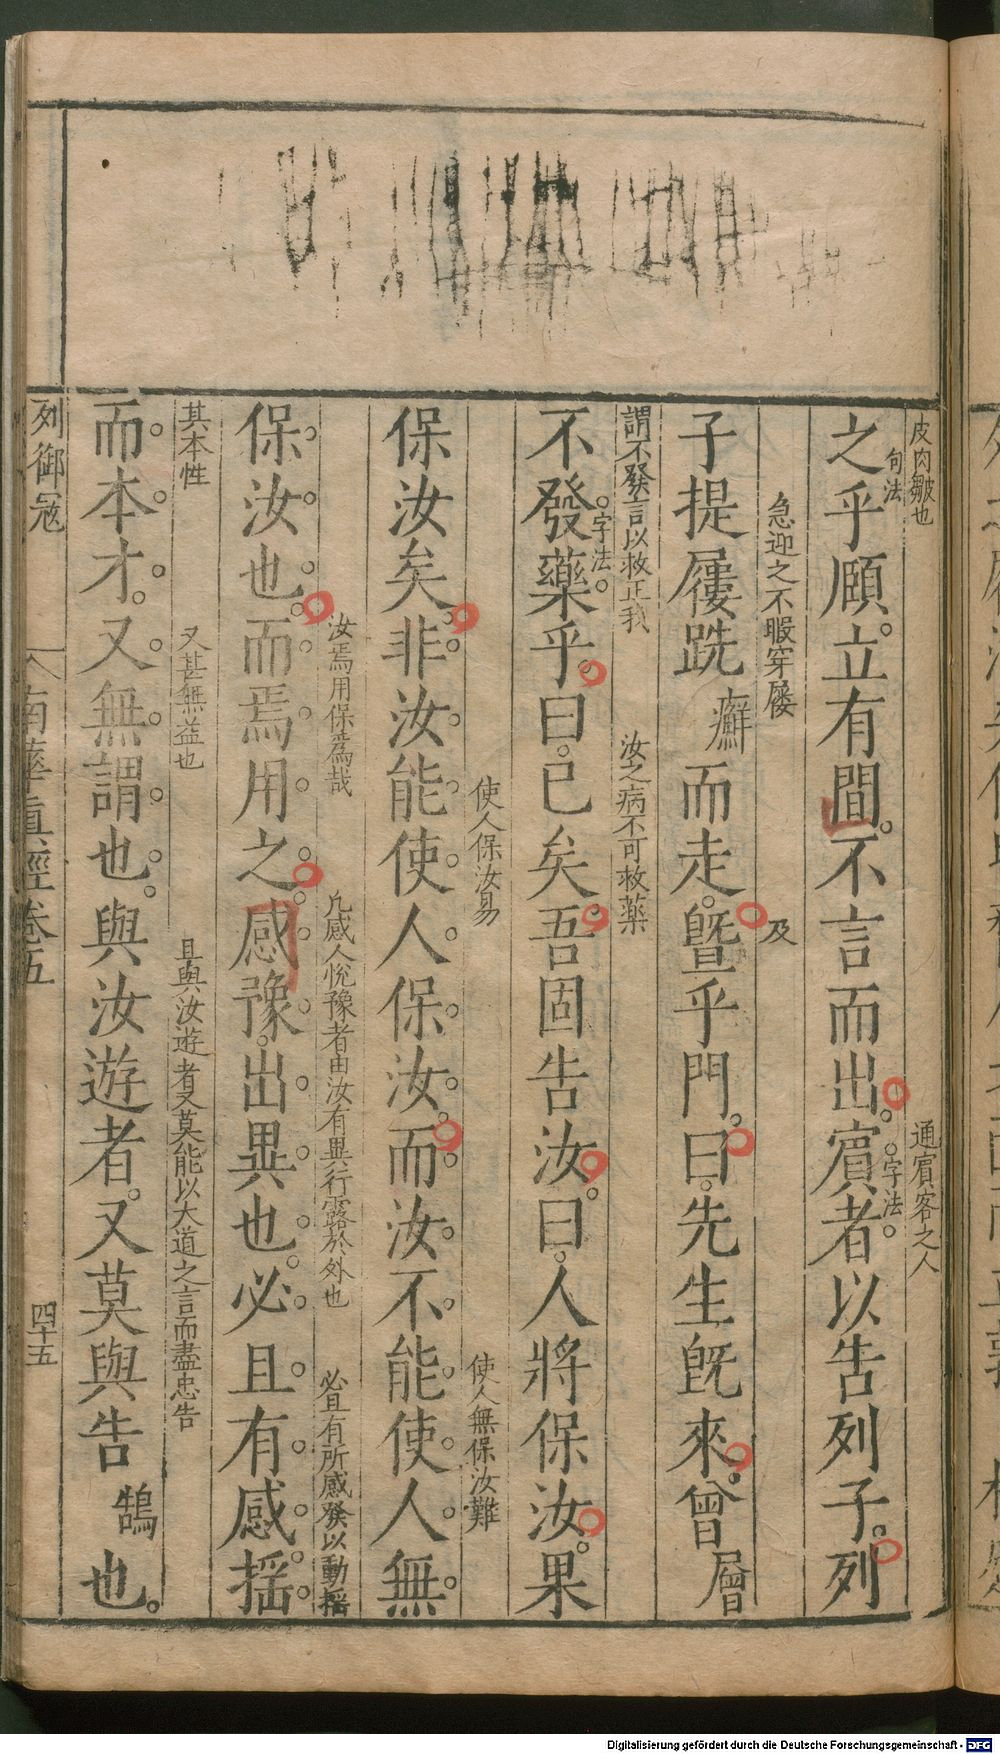 皮肉皺也
通賓客之人
句法
字法
之乎頤立有間不言而出賓者以告列子列
急迎之不暇穿屨
及
子提屨跣癬而走暨乎門曰先生旣來曾層
謂不發言以救正我
汝之病不可救藥
字法
不發藥乎曰已矣吾固告汝曰人將保汝果
使人保汝易
使人無保汝難
保汝矣非汝能使人保汝而汝不能使人無
汝焉用保爲哉
凡感人悅豫者由汝有異行露於外也
必且有所感發以動搖
保汝也而焉用之感豫出異也必且有感搖
其本性
又甚無益也
且與汝遊者又莫能以大道之言而盡忠告
而本才又無謂也與汝遊者又莫與告鵠也
列御冦
南華真經卷五
四十五
Digitalisierung gefördert durch die Deutsche Forschungsgemeinschaft - DFG